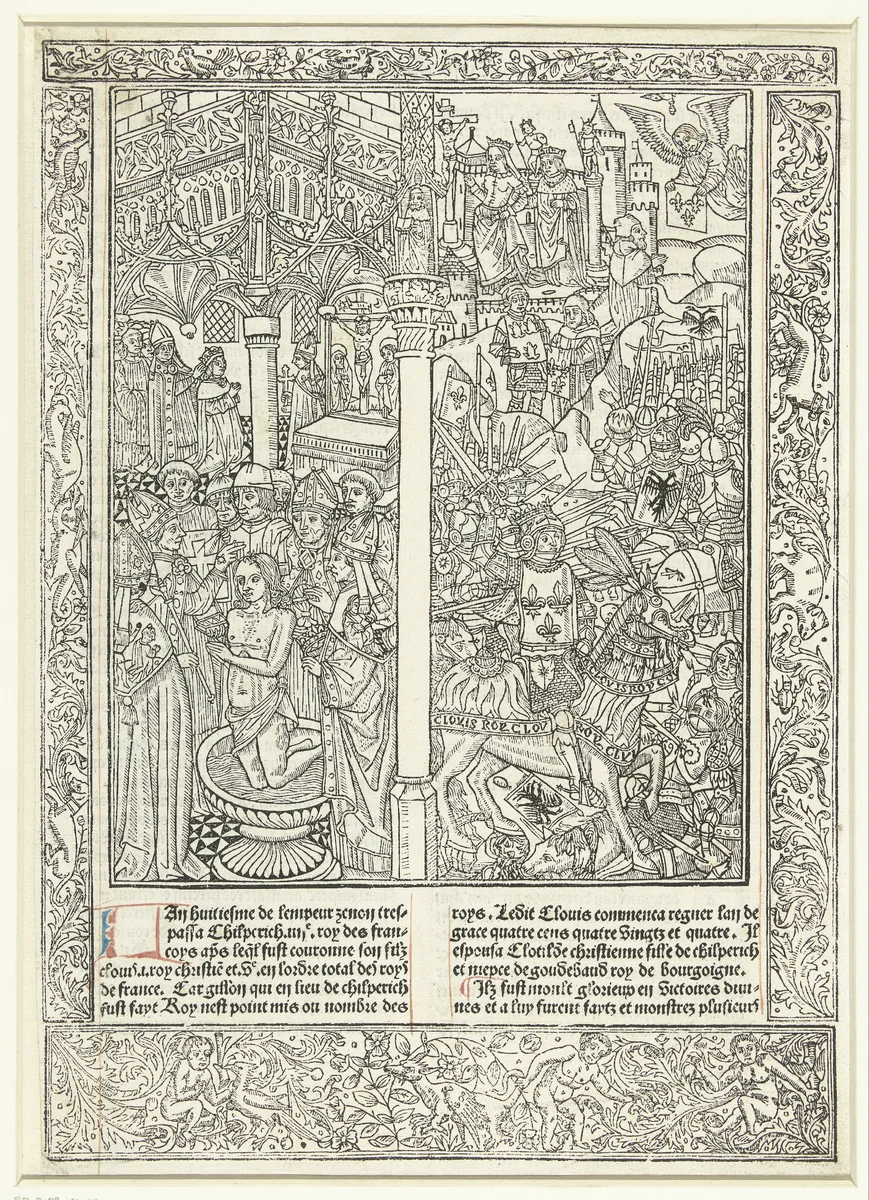 CLOVIS ROY. CLOV
ROY. CLVV
CLVVIS ROY. CV
An huitiesme de lempeur zenon tres-
passa Chilperich .iiij. roy des fran-
coys aps leql fust couronne son filz
clouis .i. roy christie et .v. en lordre total des roys
de france. Car gillon qui en lieu de chilperich
fust fayt Roy nest point mis ou nombre des
roys. Ledit Clouis commenca regner lan de
grace quatre cens quatre vingtz et quatre. Il
espousa Clotilde christienne fille de chilperich
et niepce de gondebaud roy de bourgoigne.
Ilz fust moult glorieux en victoires diui-
nes et a luy furent faytz et monstrez plusieurs